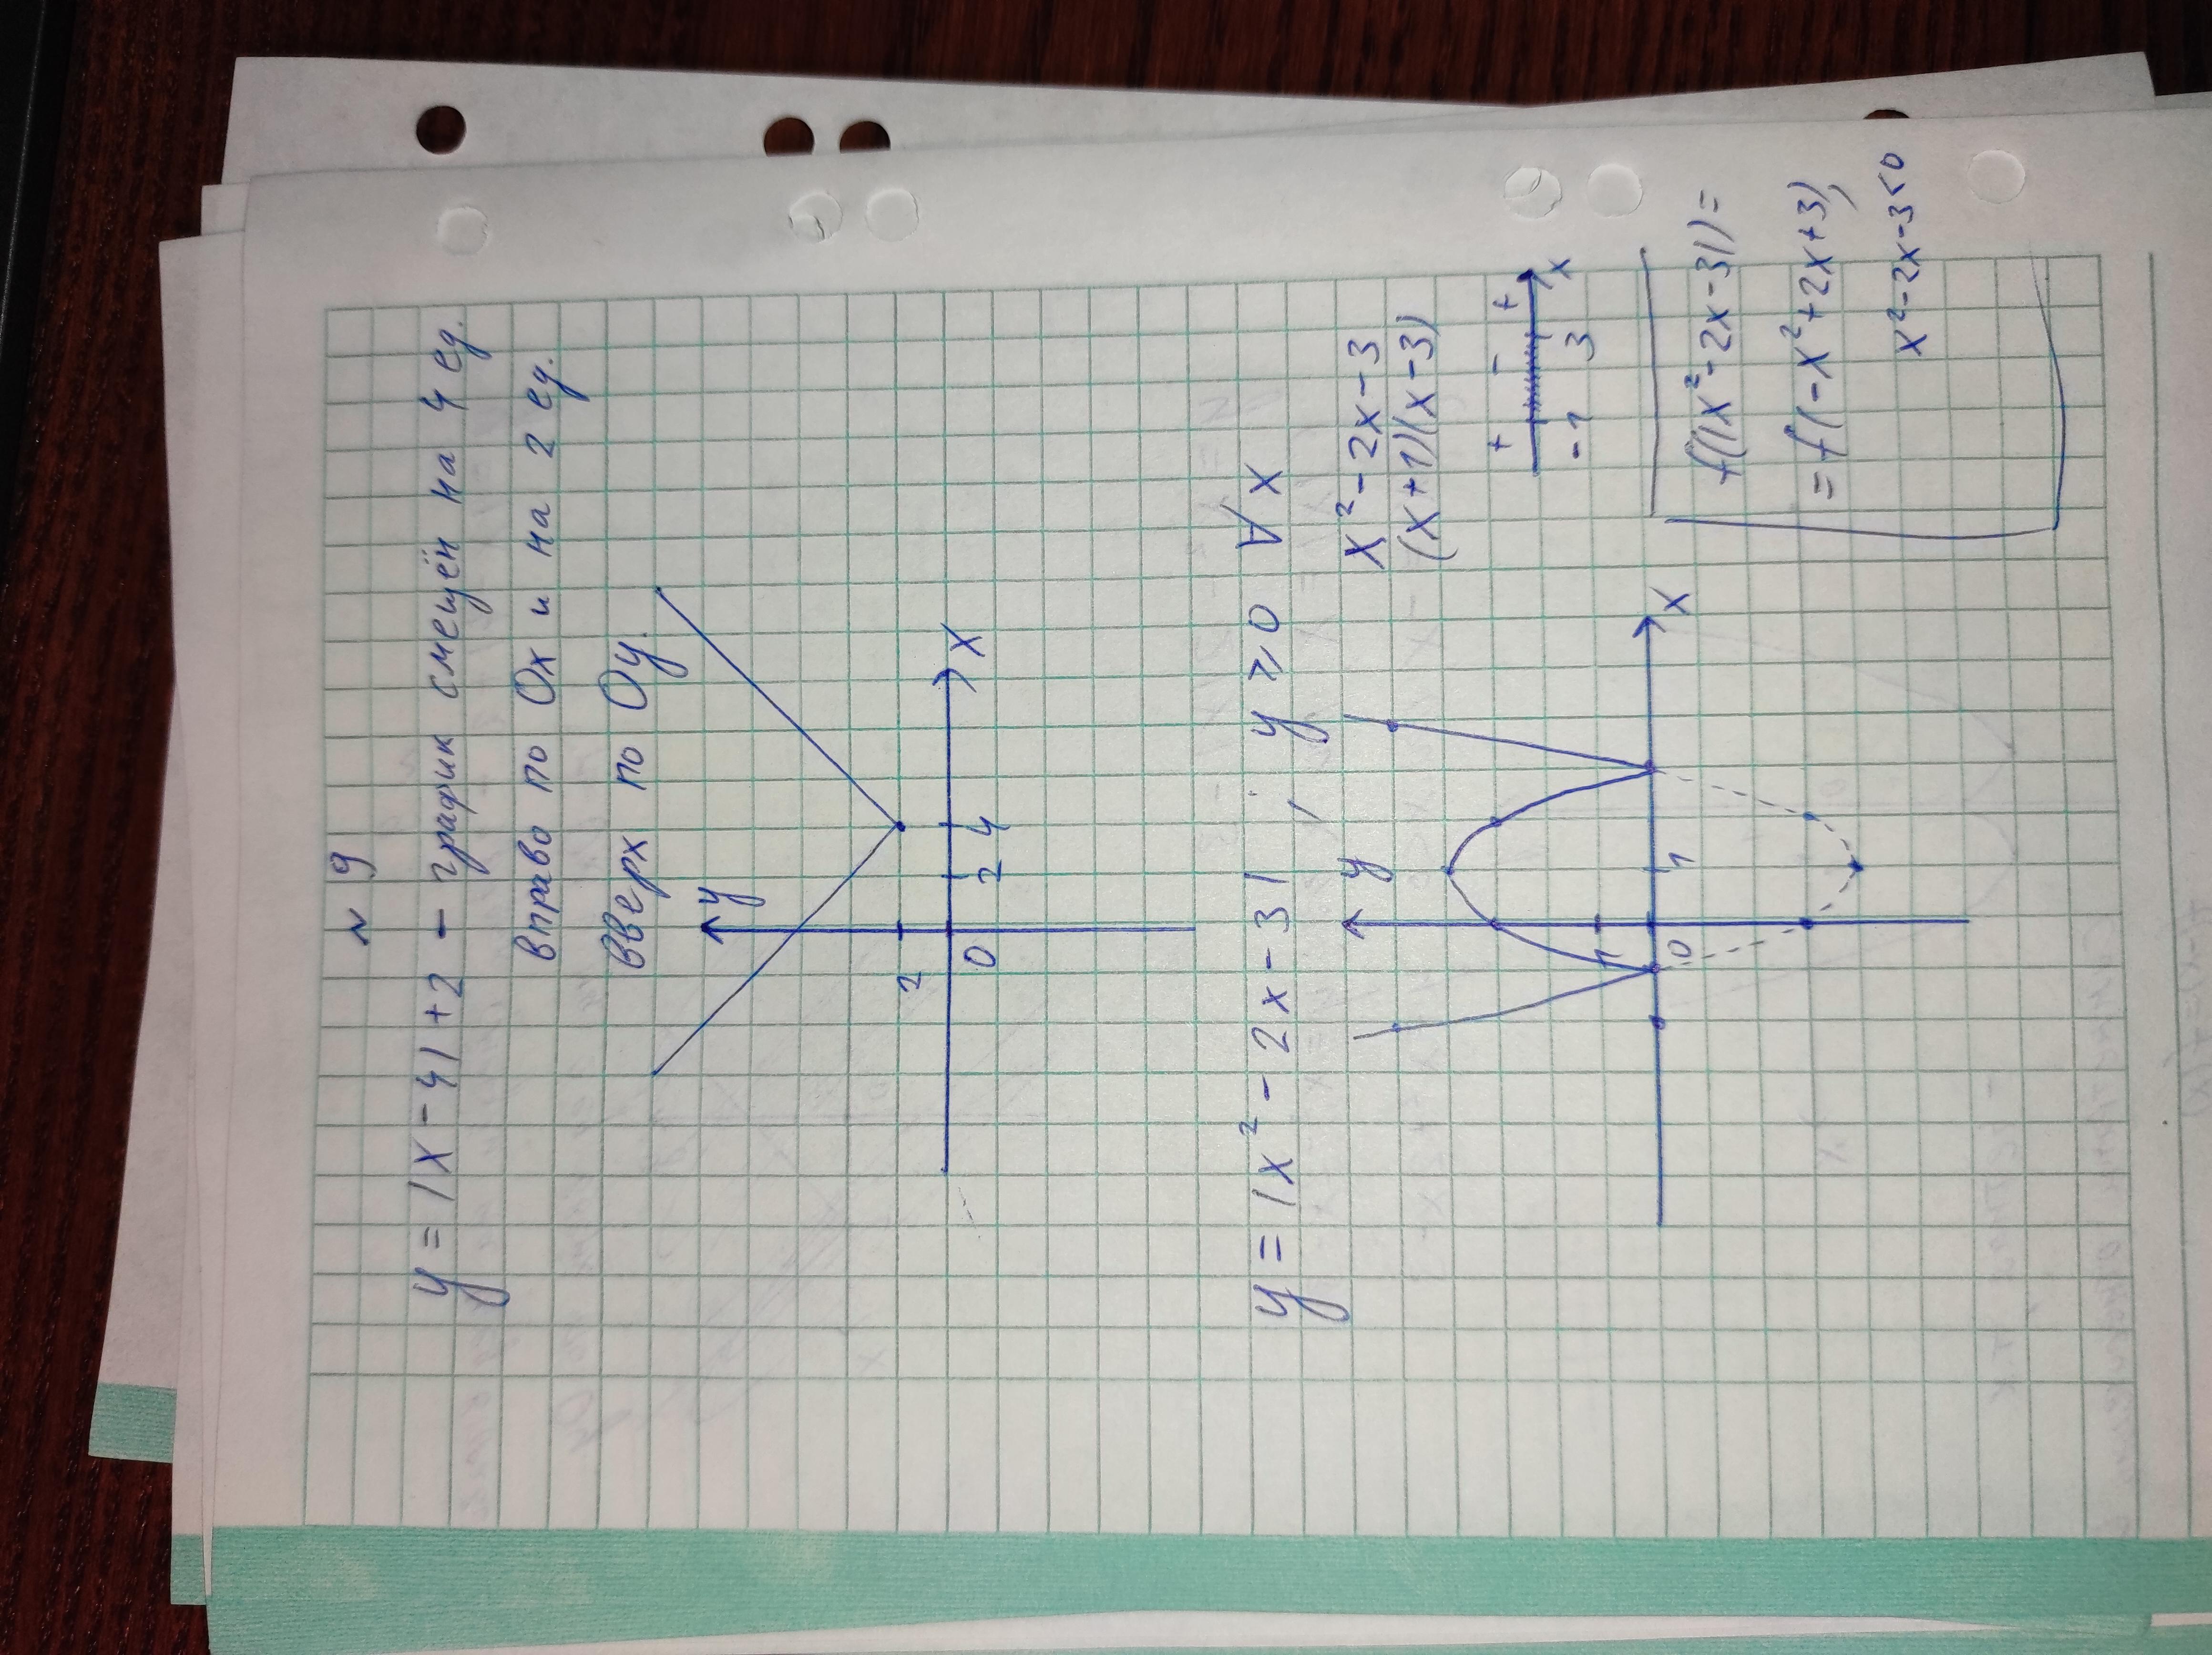 N 9
y = |x - 4| + 2 - график смещён на 4 ед.
вправо по Ox и на 2 ед.
вверх по Oy.
y
2
0
2
4
x
y = |x² - 2x - 3| ; y ⩾ 0 ∀ x
x² - 2x - 3
(x + 1)(x - 3)
+ - +
-1 3 x
y
1
0
1
x
f(|x² - 2x - 3|) =
= f(-x² + 2x + 3),
x² - 2x - 3 < 0